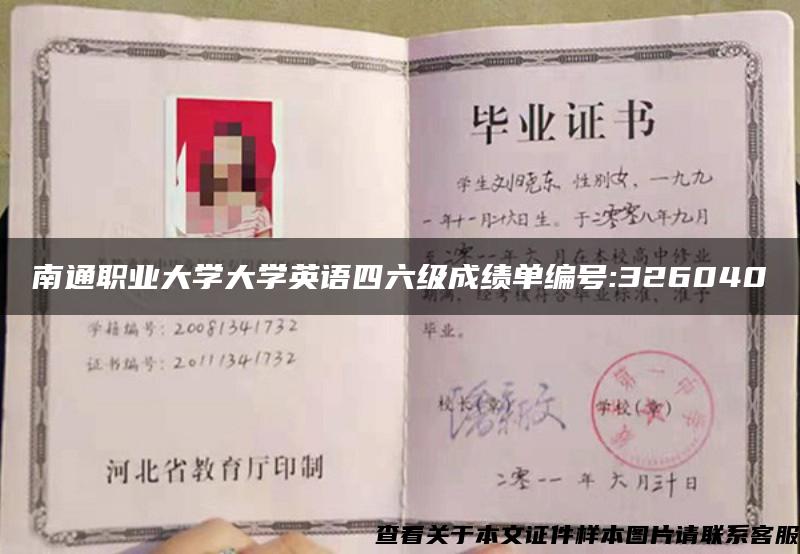 毕业证书
学生刘晓东 性别女，一九九
一年十一月二十六日生。于二零零八年九月
至二零一一年六月在本校高中修业
南通职业大学大学英语四六级成绩单编号:326040
期满，经考核符合毕业标准，准予
毕业。
学籍编号：20081341732
证书编号：20111341732
校长(章)
学校(章)
第一中学
河北省教育厅印制
二零一一年六月三十日
查看关于本文证件样本图片请联系客服